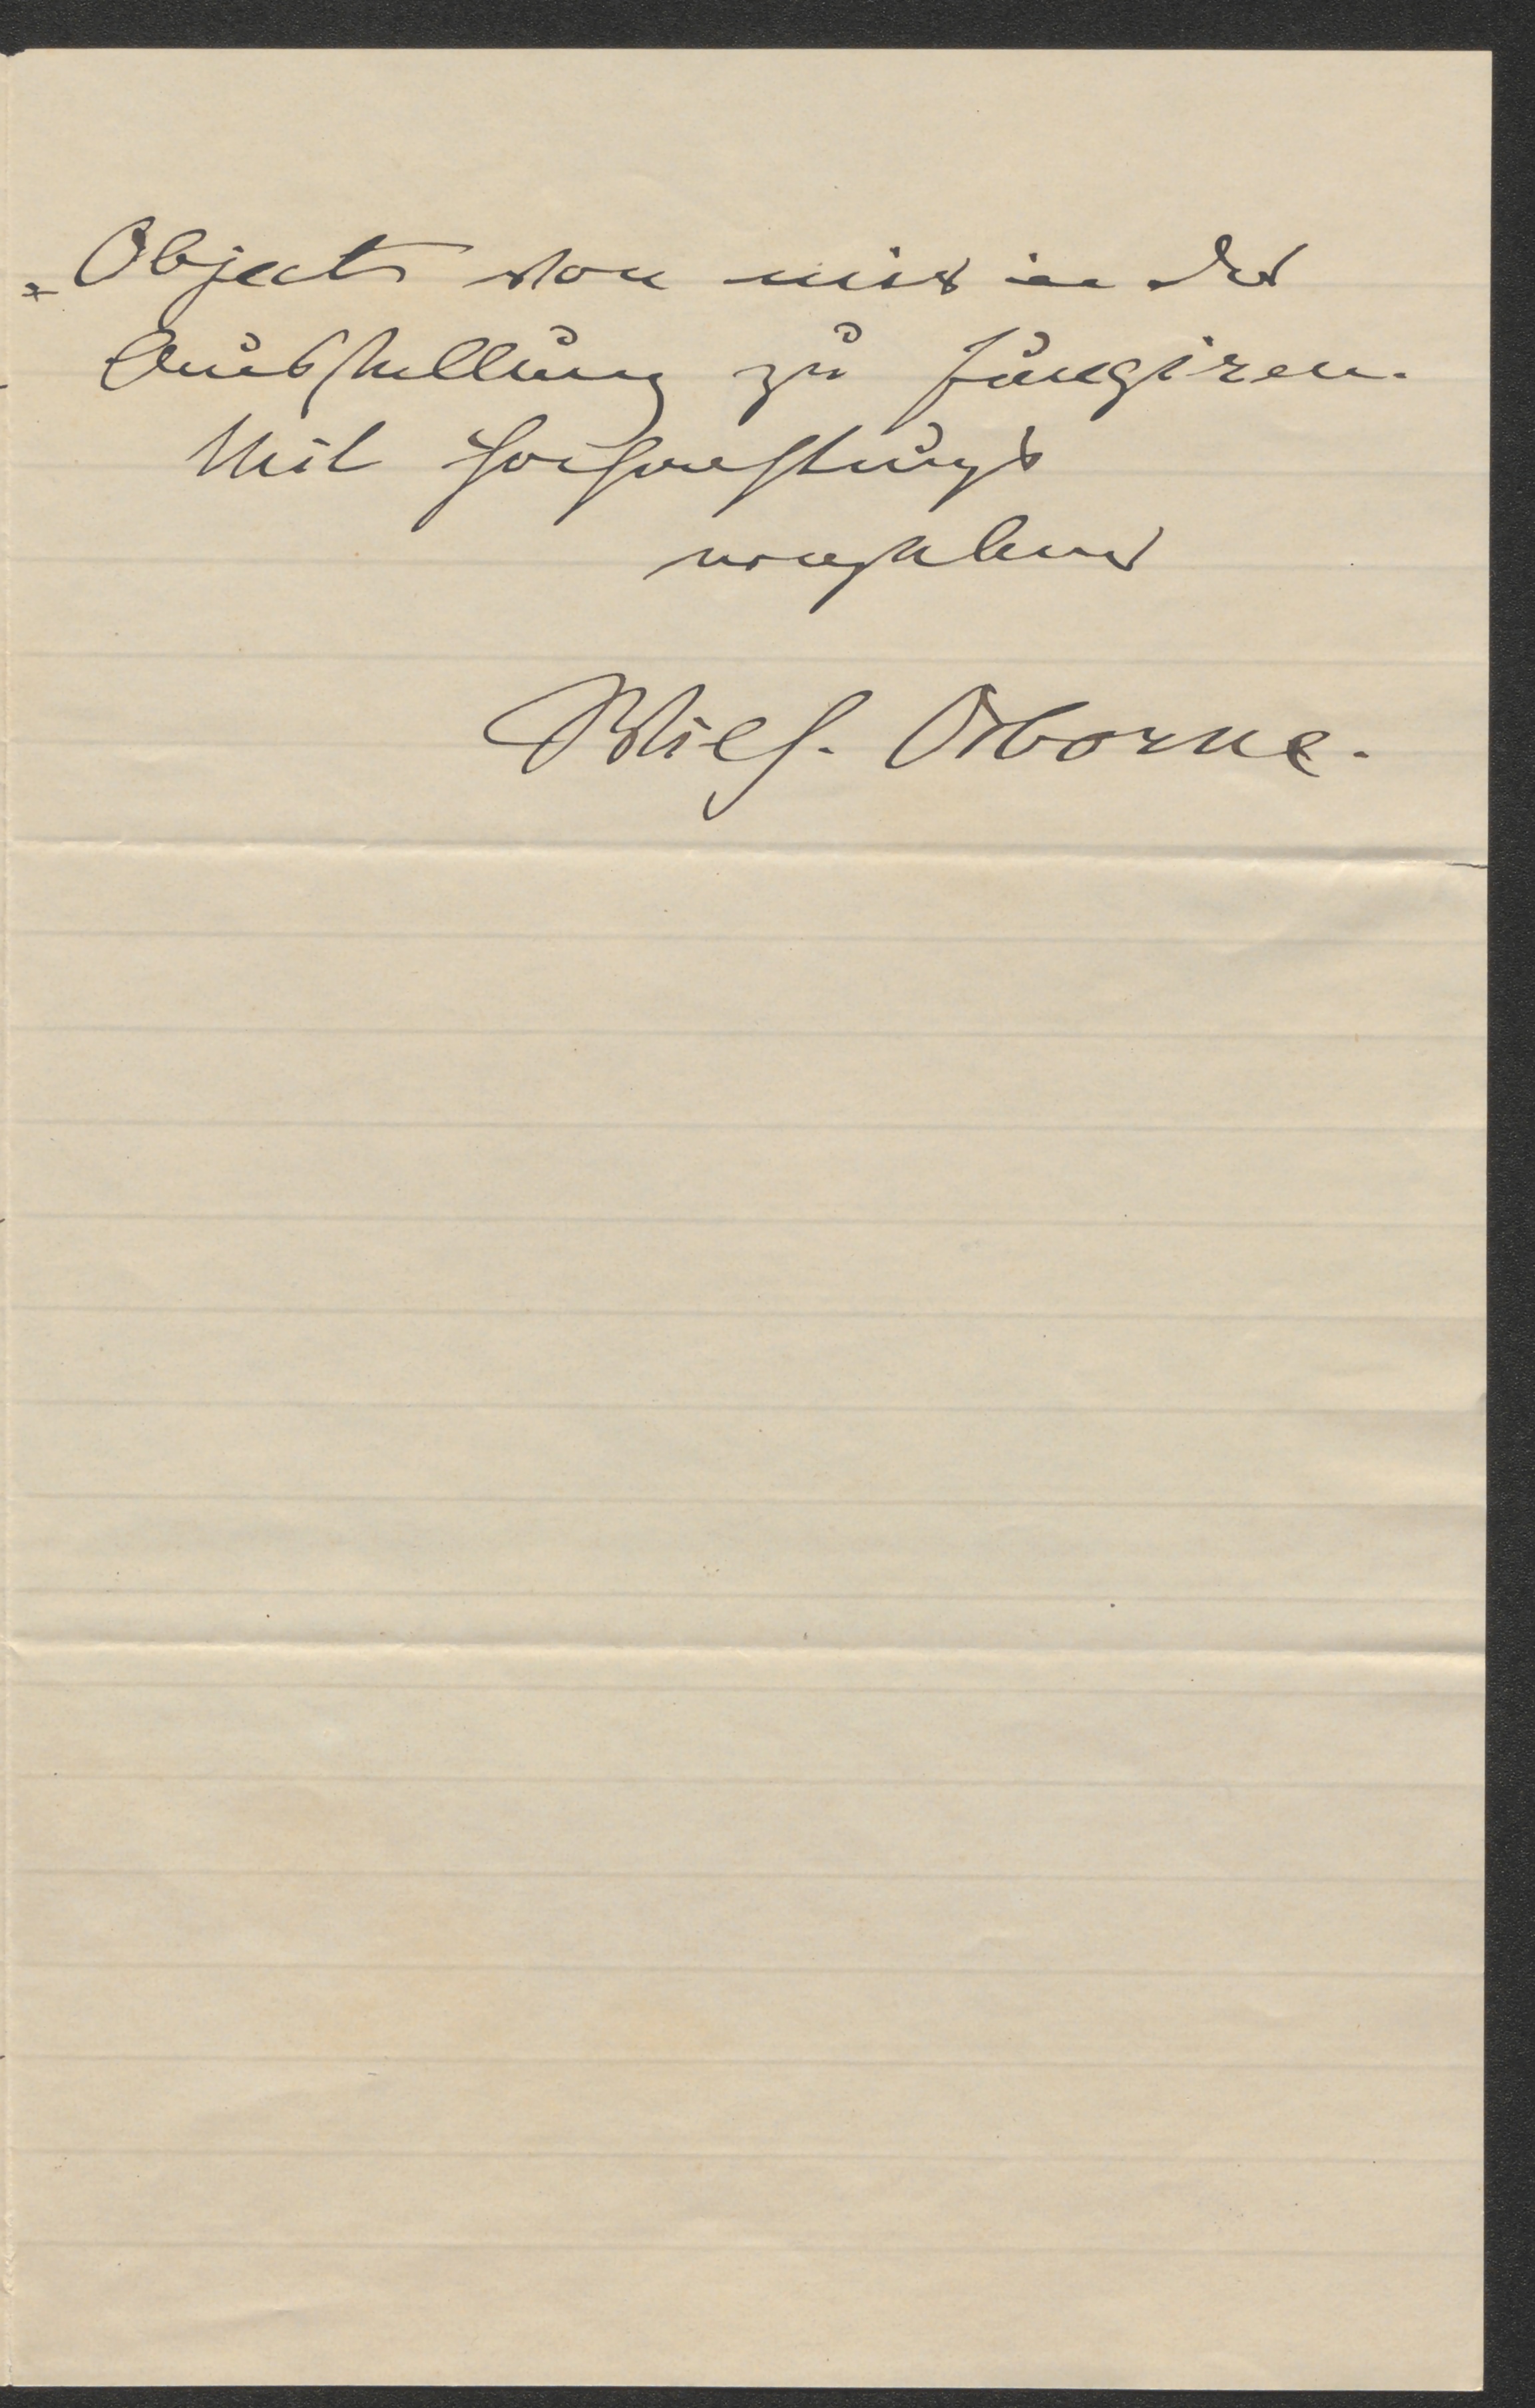 „Object von mir in der
Ausstellung zu fungiren.
Mit Hochachtungs
vollst
Wilh. Osborne.